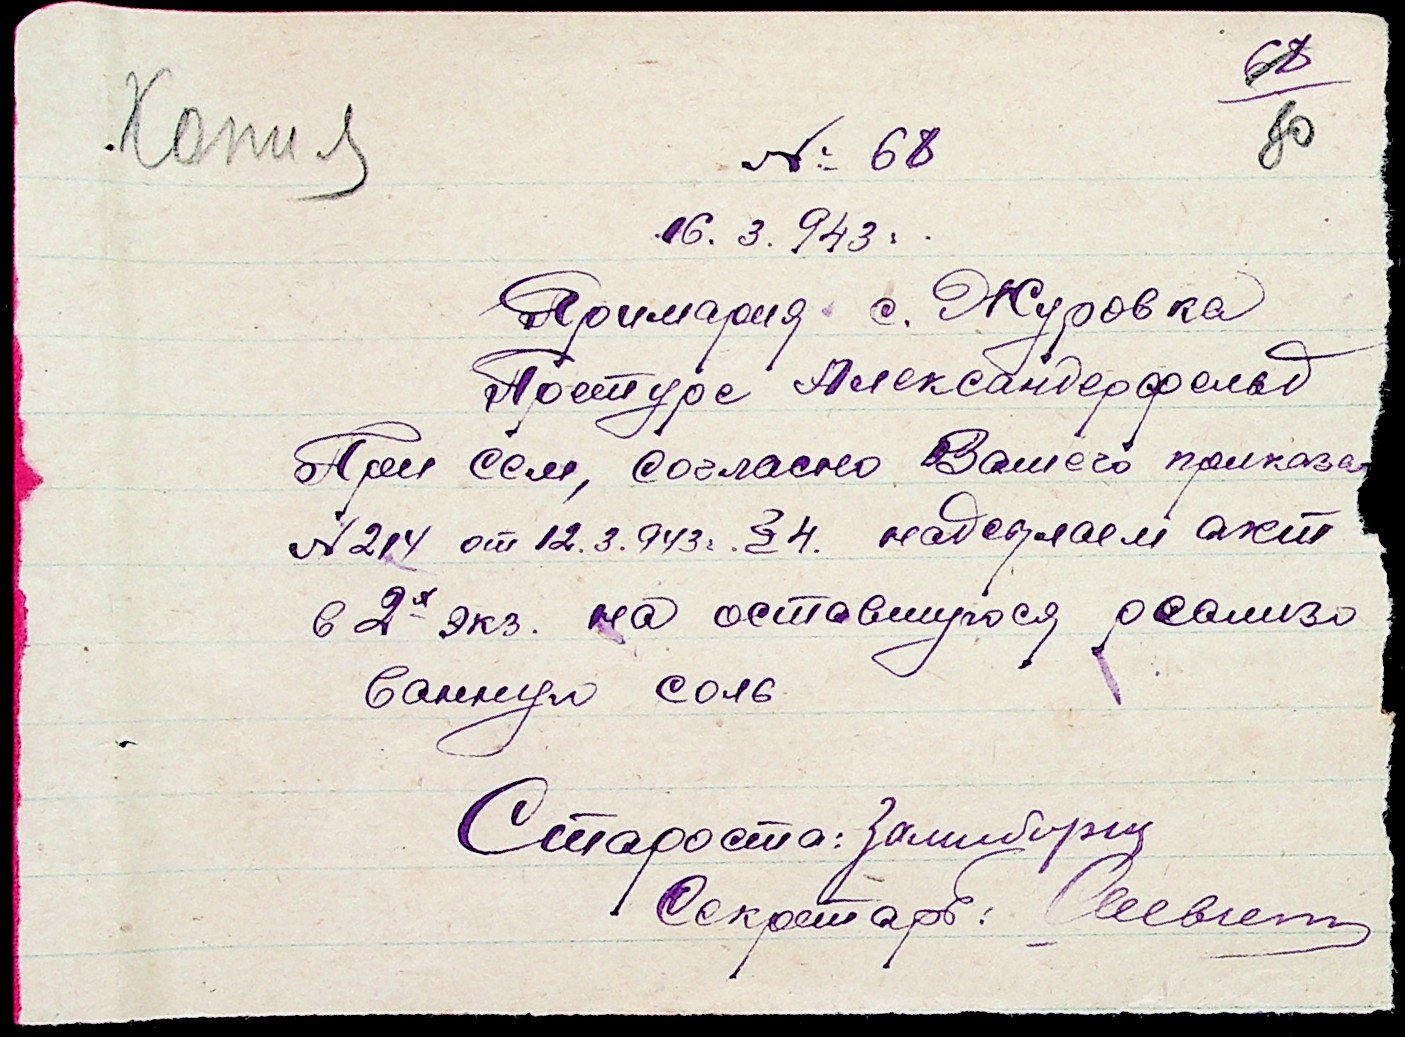 68
80
Копия
№ 68
16. 3. 943 г.
Примария с. Журовка
Претуре Александерфельд
При сем, согласно Вашего приказа
№ 214 от 12. 3. 943 г. § 4. надсылаем акт
в 2х экз. на оставшуюся реализо
ванную соль
Староста: Залиборщ
Секретарь: